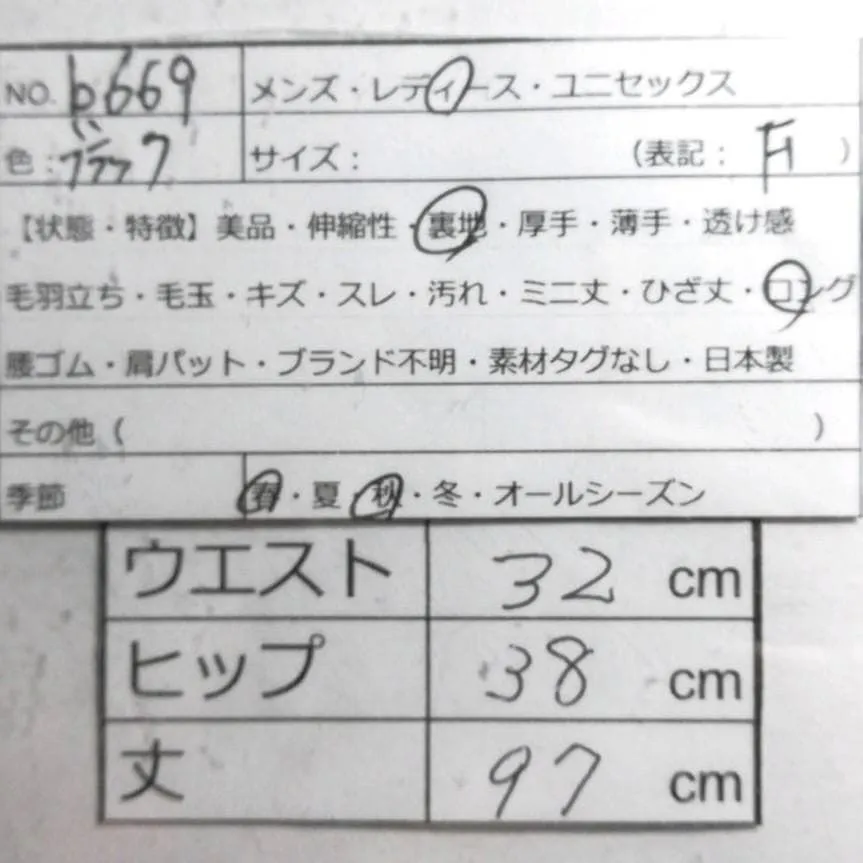 NO. b669 メンズ・レディース・ユニセックス
色：ブラック サイズ： （表記： F）
【状態・特徴】美品・伸縮性・裏地・厚手・薄手・透け感
毛羽立ち・毛玉・キズ・スレ・汚れ・ミニ丈・ひざ丈・ロング
腰ゴム・肩パット・ブランド不明・素材タグなし・日本製
その他（ ）
季節 春・夏・秋・冬・オールシーズン
ウエスト 32 cm
ヒップ 38 cm
丈 97 cm